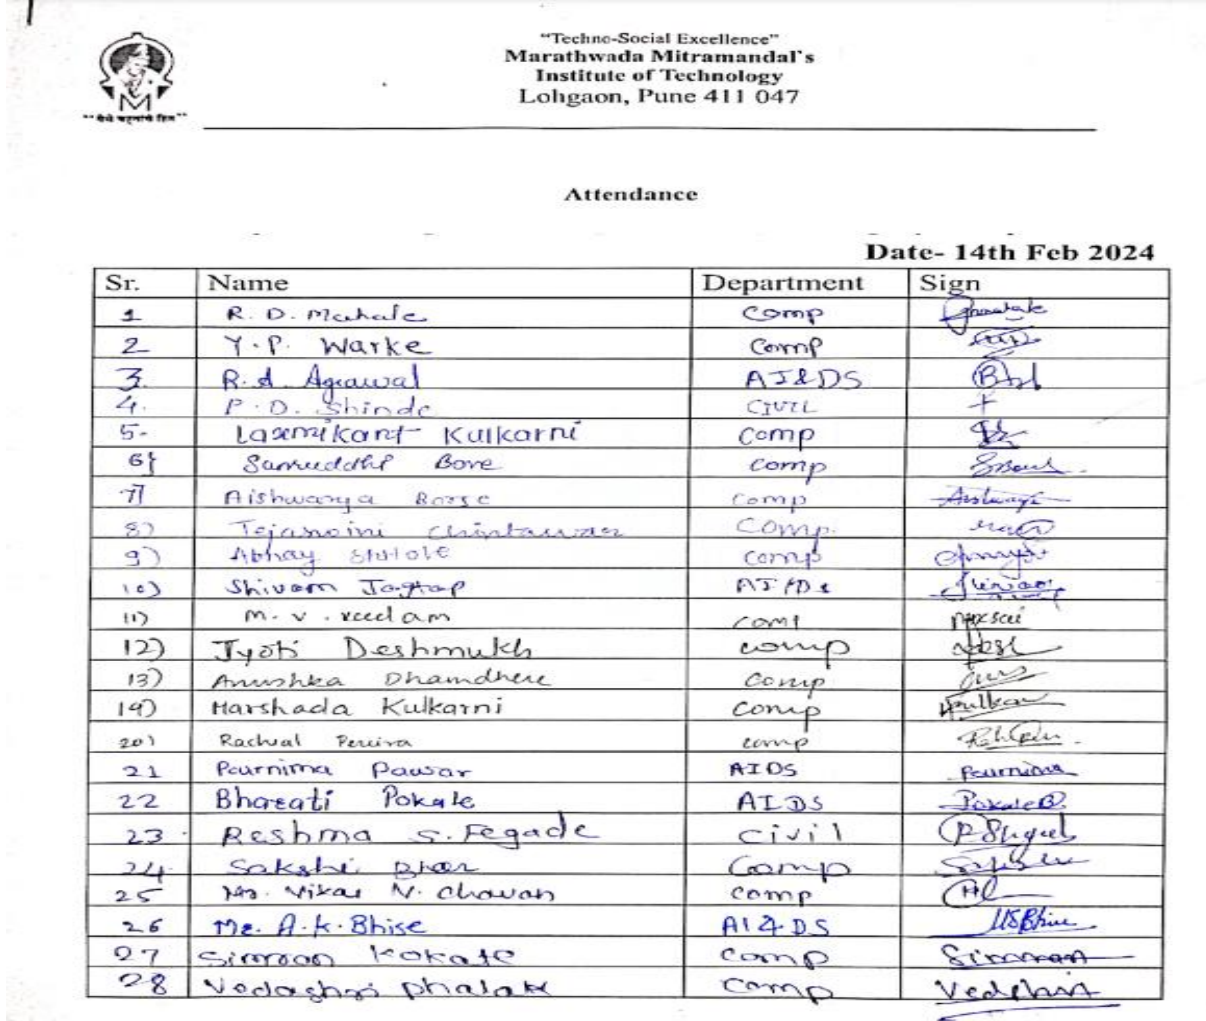 "Techno-Social Excellence"
Marathwada Mitramandal's
Institute of Technology
Lohgaon, Pune 411 047
M
Attendance
Date- 14th Feb 2024
Sr. Name Department Sign
1 R. D. Mahale comp
2 Y. P. Warke Comp
3. R. A. Agrawal AI&DS
4. P. D. Shinde CIVIL
5- Laxmikant Kulkarni Comp
6} Samruddhi Bore comp
7] Aishwarya Borse comp
8) Tejaswini Chintawar Comp.
9) Abhay comp
10) Shivam Jagtap AI/DS
11) M. V.
12) Jyoti Deshmukh comp
13) Anushka Dhamdhere comp
14) Harshada Kulkarni Comp
20) Rachual Pereira comp
21 Pournima Pawar AIDS Pournima
22 Bharati Pokale AIDS Pokale B.
23 Reshma S. Fegade Civil
24. Sakshi Comp
25 Mr. Vikas N. Chavan comp
26 Ms. A. K. Bhise AI&DS
27 Simran Kokate Comp Simran
28 Vedashri Phalak Comp